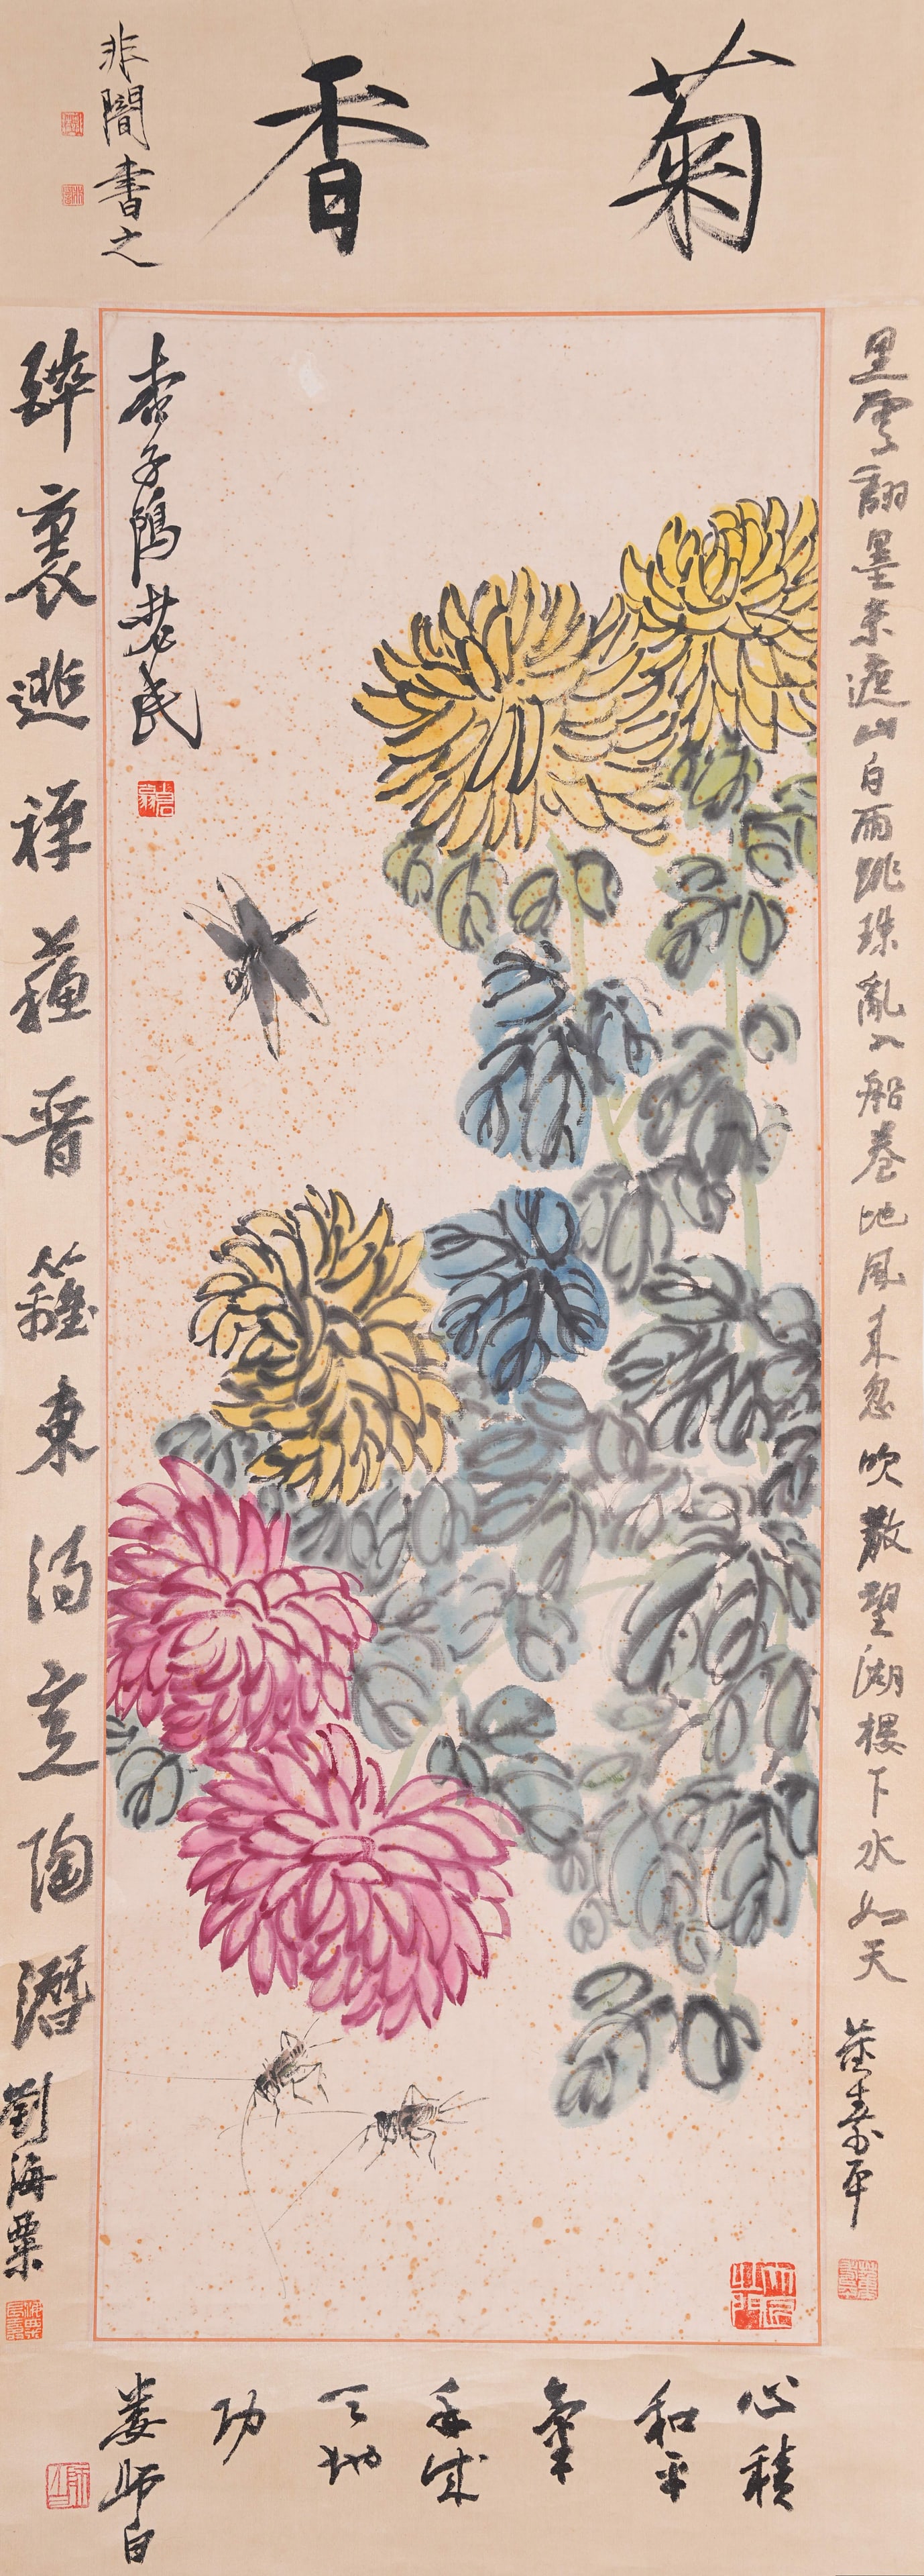 菊香
非闇書之
黑雲翻墨未遮山白雨跳珠亂入船卷地風來忽吹散望湖樓下水如天
董壽平
杏子隝老民
大匠之門
醉裏逃禪蘇晉籬東得意陶潛
劉海粟
心積
和平
氣
手成
天地
功
婁師白